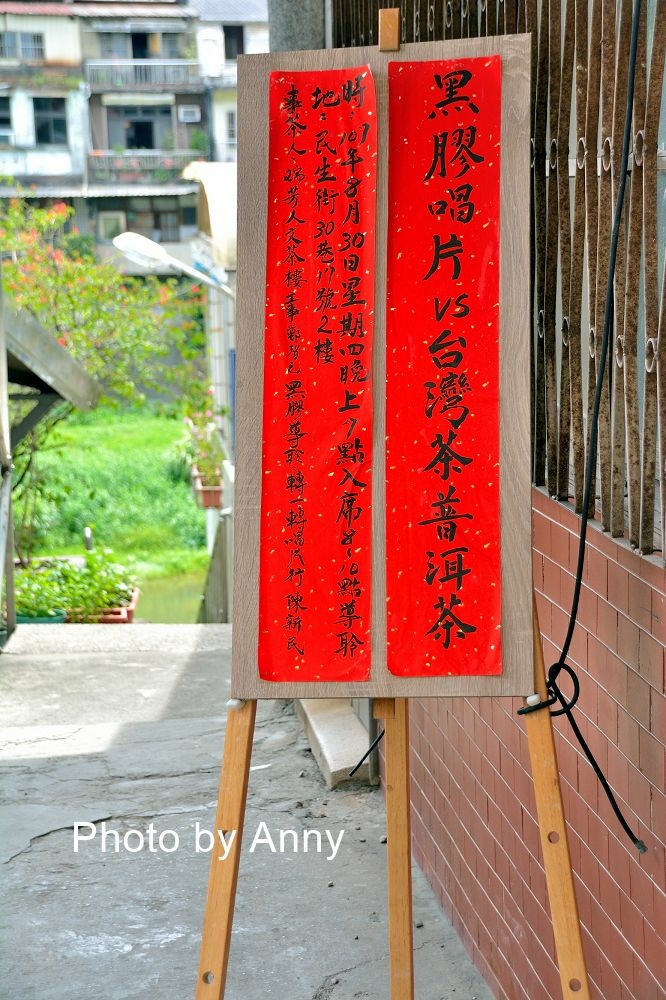 黑膠唱片VS台灣茶普洱茶
時：107年8月30日星期四晚上7點入席8~10點導聆
地：民生街30巷17號2樓
奉茶人：瑞芳人文茶樓 黑膠導聆 轉一轉唱片行陳新民
Photo by Anny